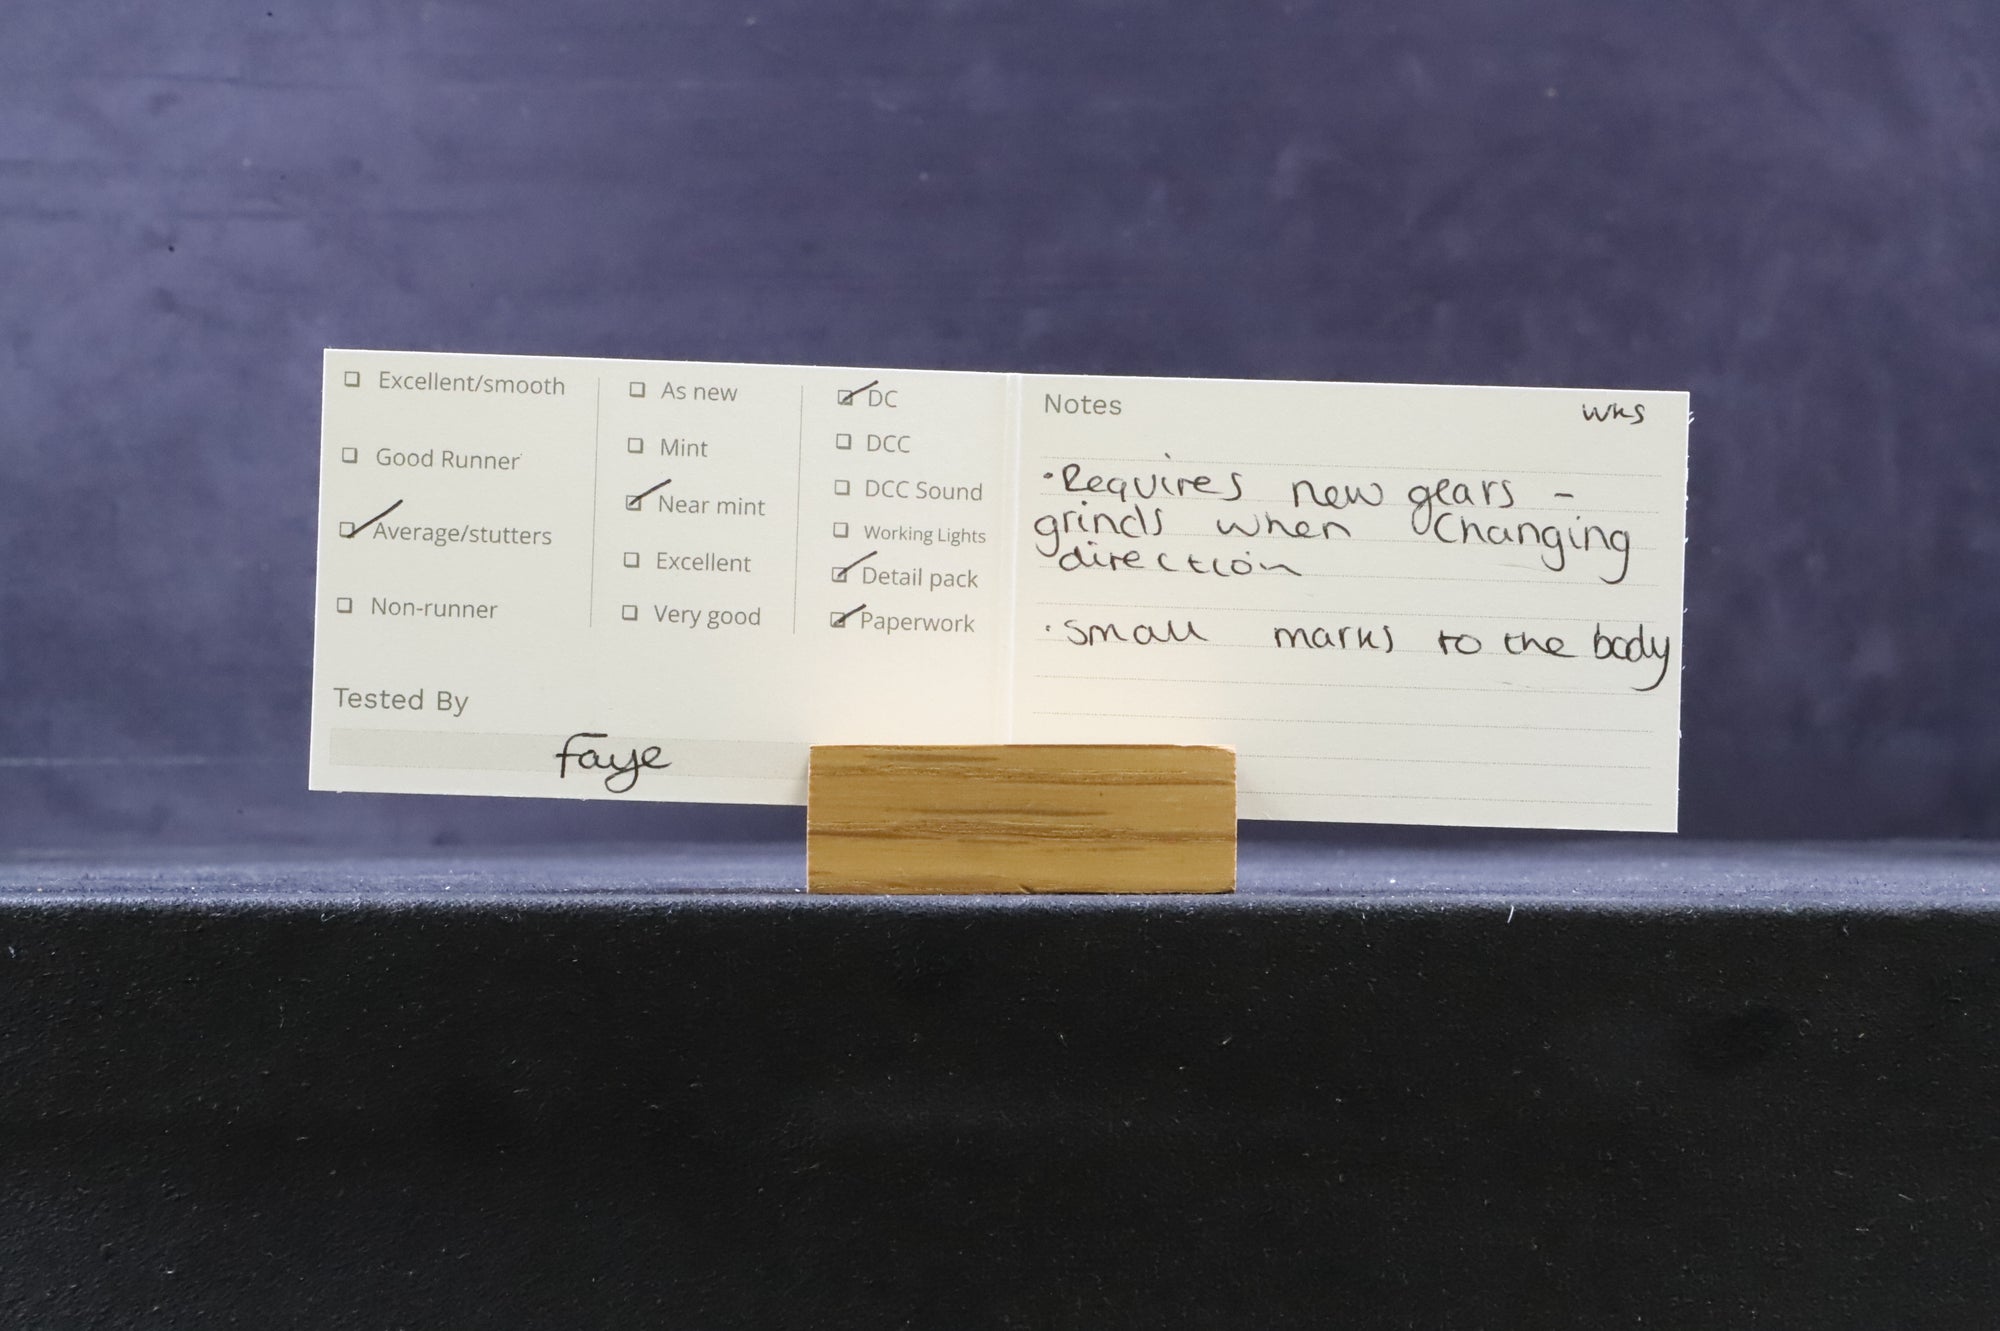 ☐ Excellent/smooth
☐ Good Runner
☑ Average/stutters
☐ Non-runner
☐ As new
☐ Mint
☑ Near mint
☐ Excellent
☐ Very good
☑ DC
☐ DCC
☐ DCC Sound
☐ Working Lights
☑ Detail pack
☑ Paperwork
Tested By
Faye
Notes
WKS
· Requires new gears -
grinds when changing
direction
· small marks to the body